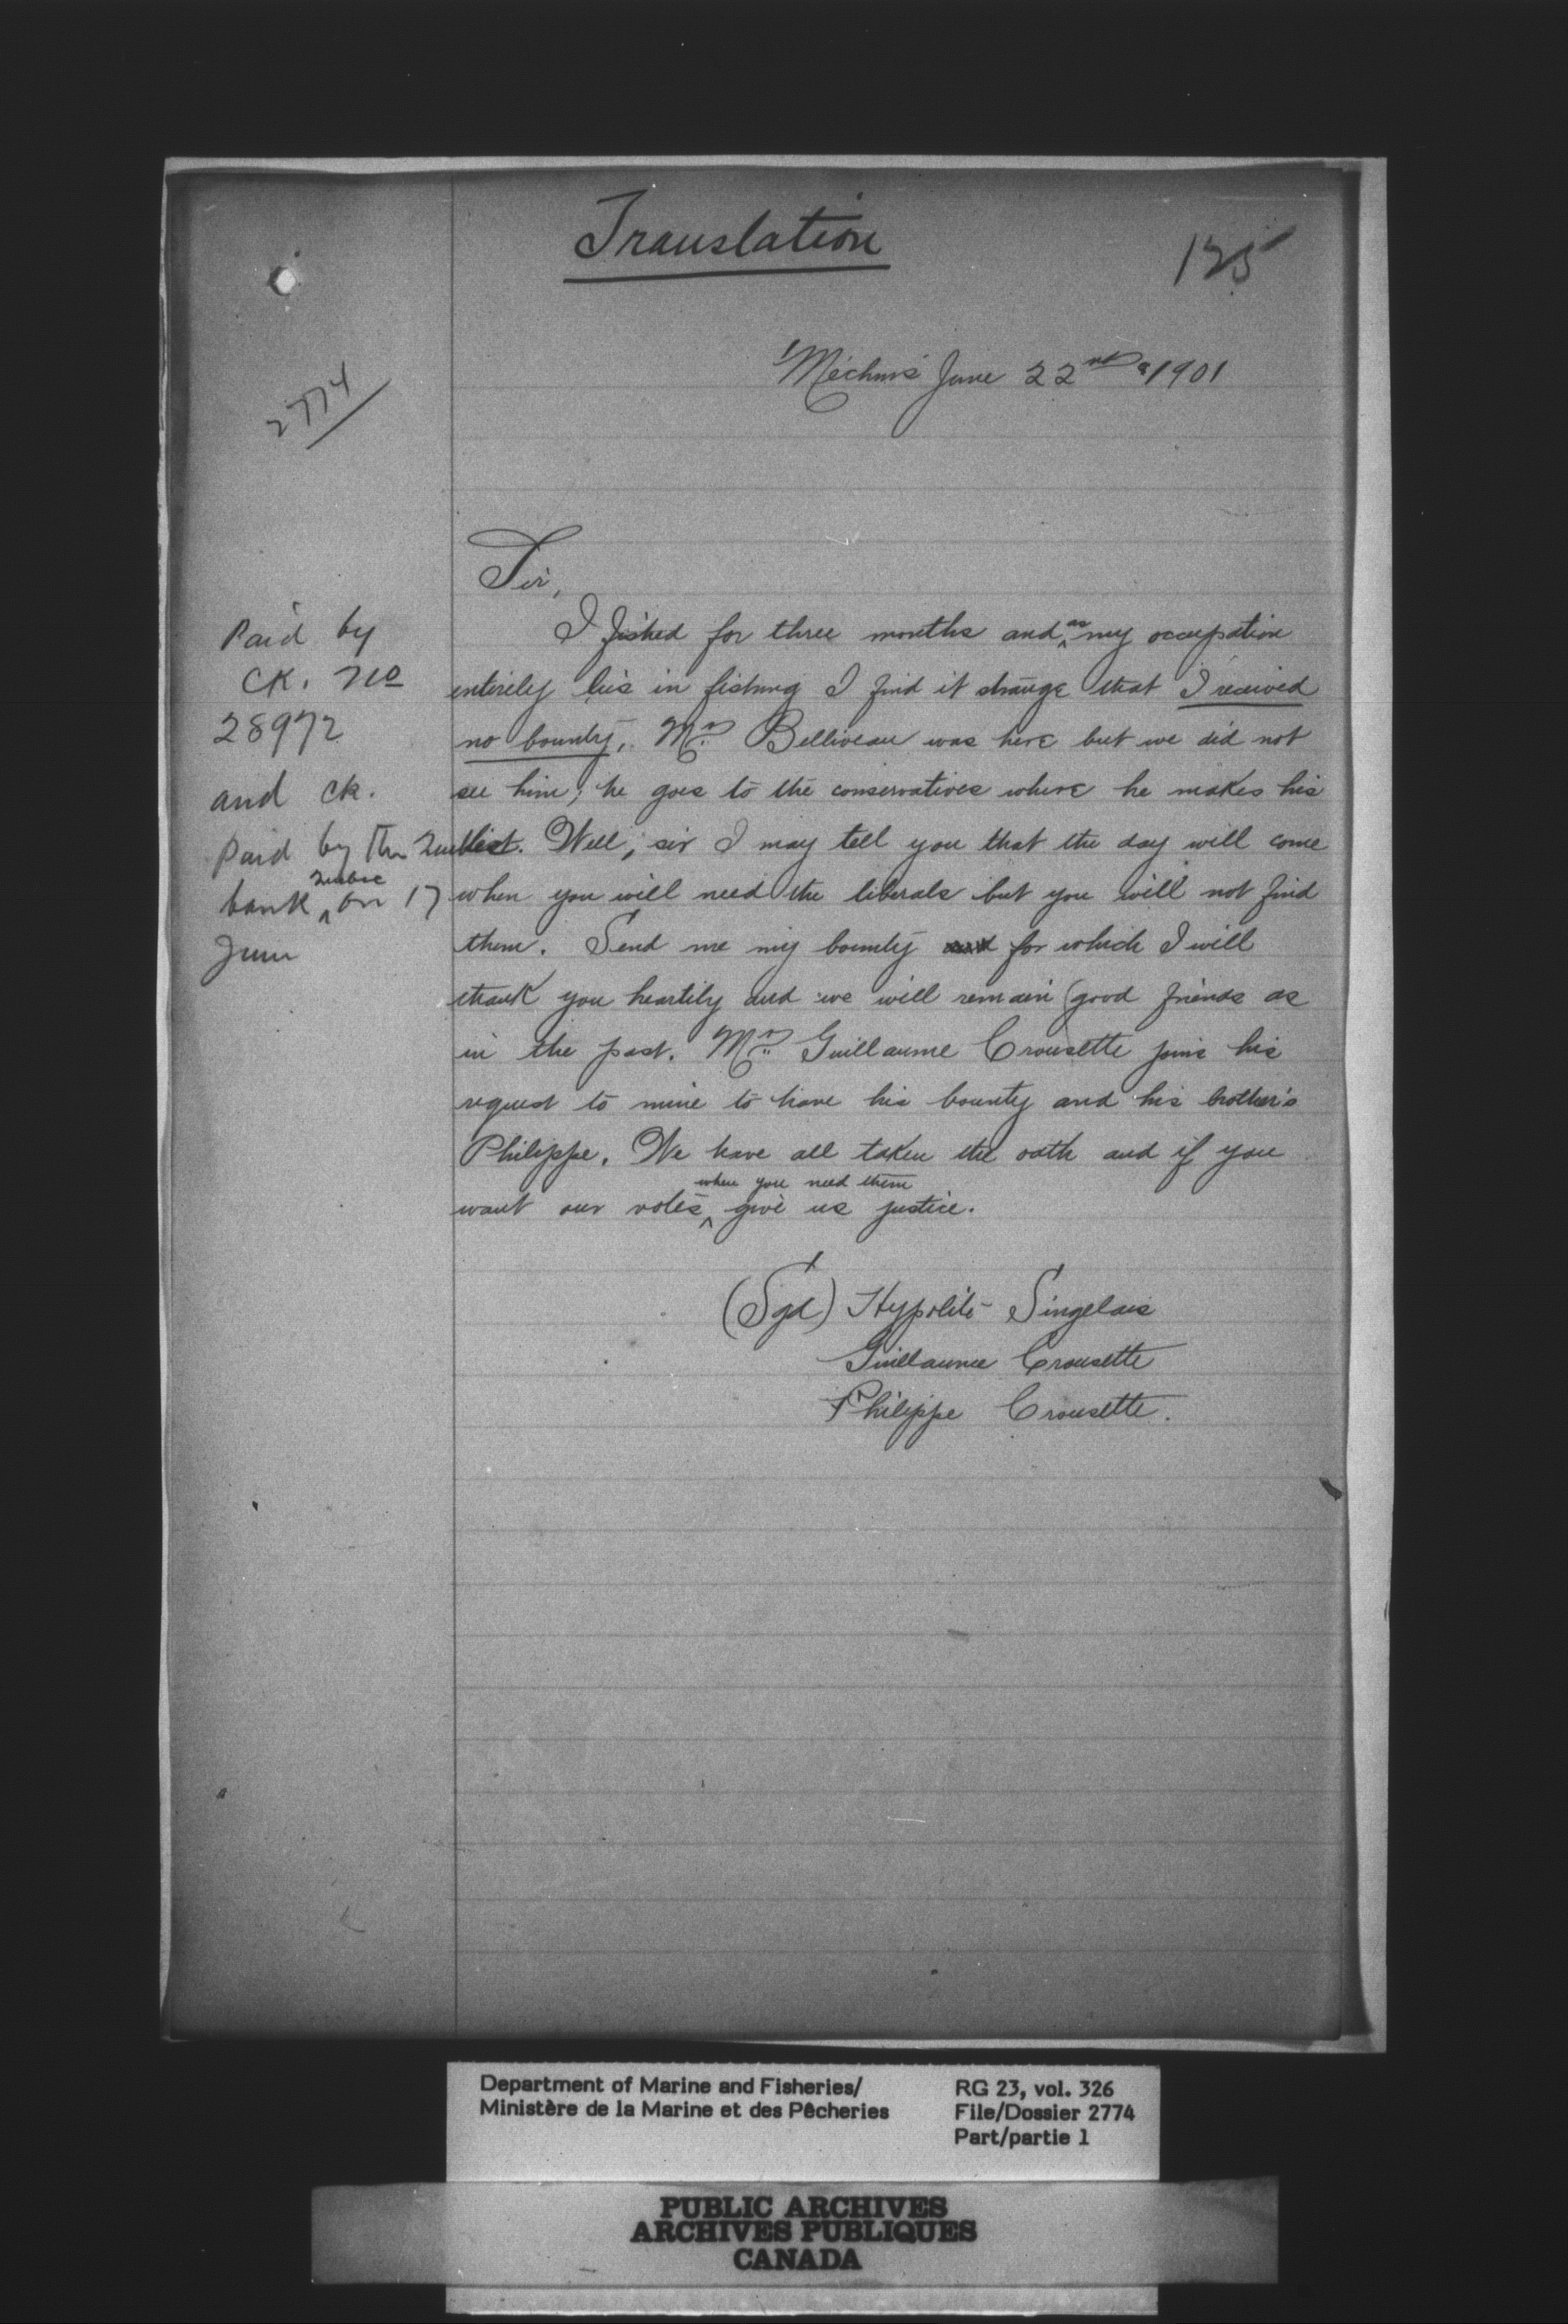 Translation
125
Méchins June 22nd 1901
2774
Sir,
I fished for three months and as my occupation
entirely lies in fishing I find it strange that I received
no bounty, Mr. Belliveau was here but we did not
see him; he goes to the conservatives where he makes his
list. Well, sir I may tell you that the day will come
when you will need the liberals but you will not find
them. Send me my bounty and for which I will
thank you heartily and we will remain good friends as
in the past. Mr. Guillaume Crousette joins his
request to mine to have his bounty and his brother's
Philippe. We have all taken the oath and if you
want our votes when you need them give us justice.
(Sgd) Hypolite Singelais
Guillaume Crousette
Philippe Crousette.
Paid by
CK. No
28972
and ck.
paid by the Quebec
bank Quebec on 17
June
Department of Marine and Fisheries/
Ministère de la Marine et des Pêcheries
RG 23, vol. 326
File/Dossier 2774
Part/partie 1
PUBLIC ARCHIVES
ARCHIVES PUBLIQUES
CANADA